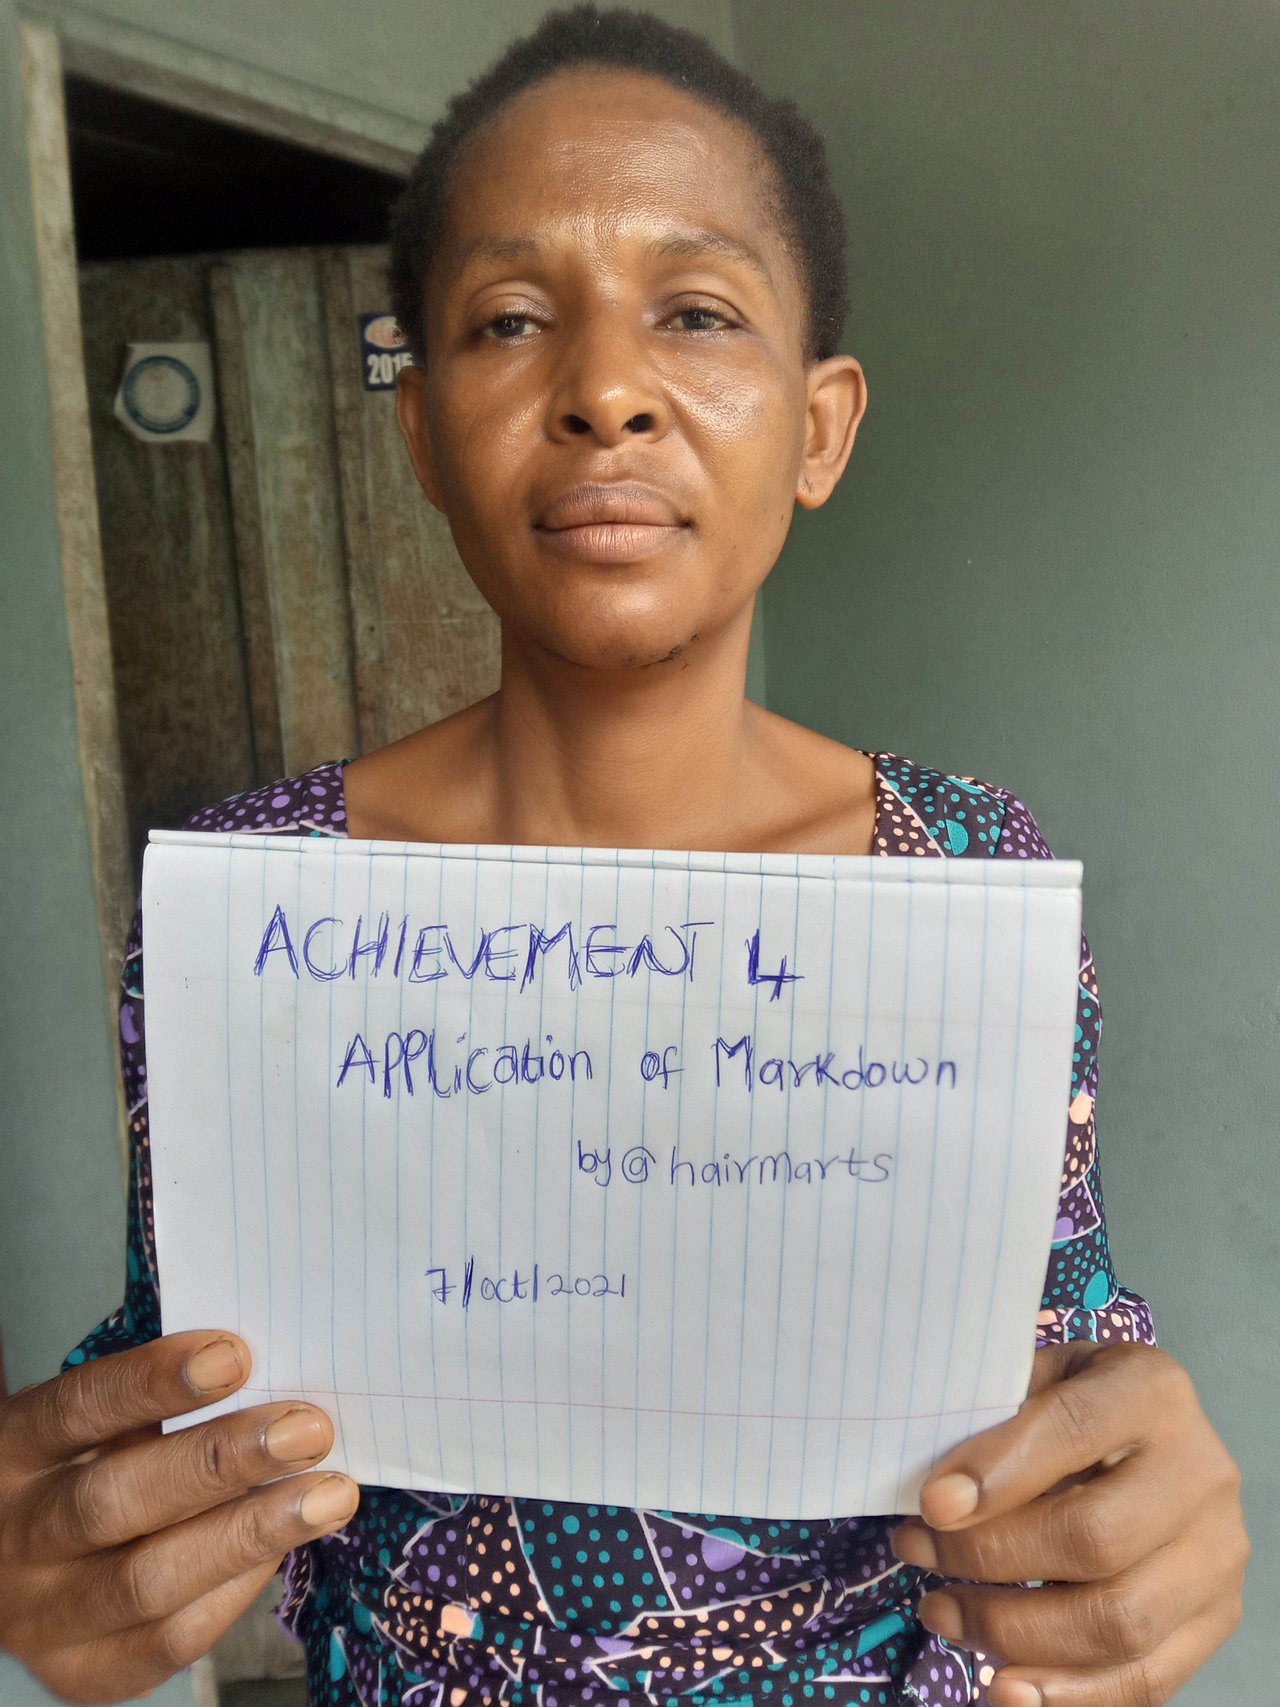 2015
ACHIEVEMENT 4
Application of Markdown
by @hairmarts
7/oct/2021